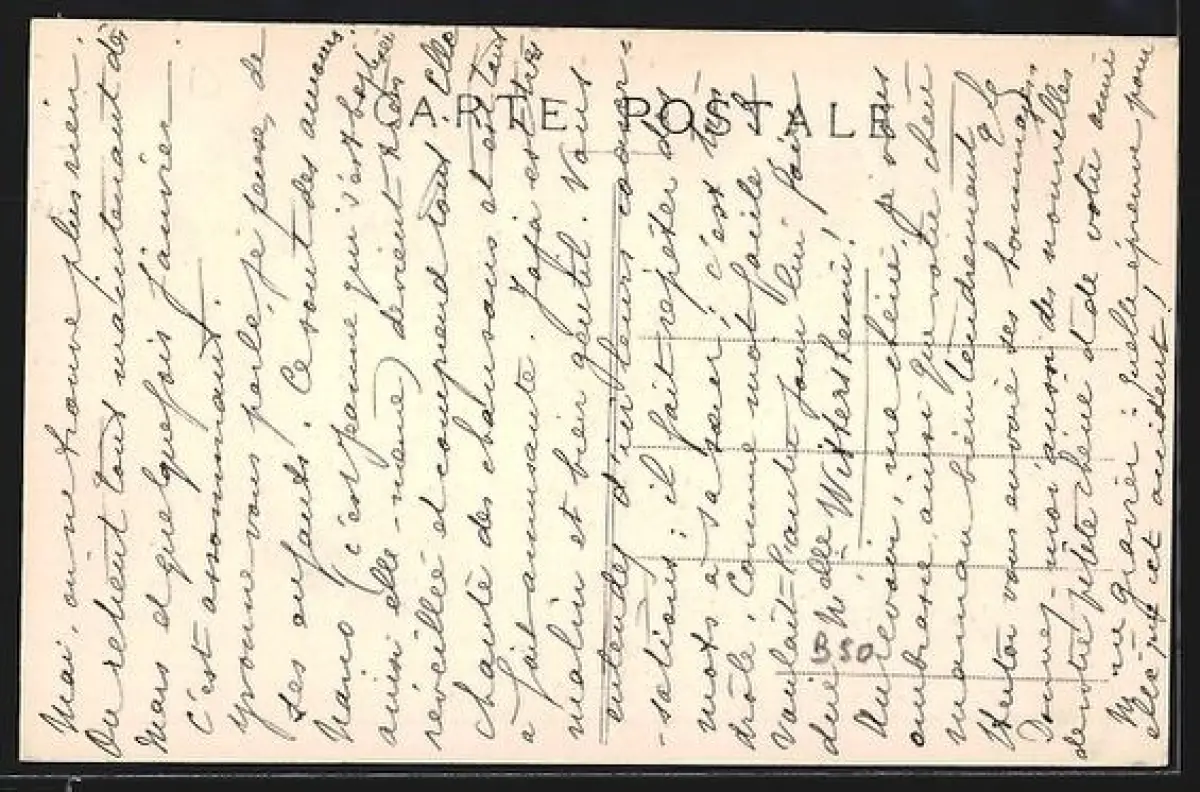 CARTE POSTALE
Mai, on ne trouve plus rien.
On retient tout maintenant dès
Mars et quelquefois Janvier
c'est assommant.
Yvonne vous parle, je pense, de
ses enfants. Ce sont des amours.
Nano (c'est Yvonne qui s'est baptisée
ainsi elle-même) devient très
réveillée et comprend tout. Elle
chante des chansons et est tout
à fait amusante. Jaja est très
malin et bien gentil. Vous
entendez d'ici leurs conver-
-sations : il fait répéter des
mots à sa sœur; c'est très
drôle. Comme mot facile il
voulait l'autre jour lui faire
dire Melle Wittersheim!
Au revoir, ma chérie, je vous
embrasse, ainsi que votre chère
maman bien tendrement, et
vous envoie ses hommages.
Donnez-moi aussi des nouvelles
de votre petite chérie et de votre amie
Mie Xavier : quelle épreuve pour
elle; et cet accident!
BSO